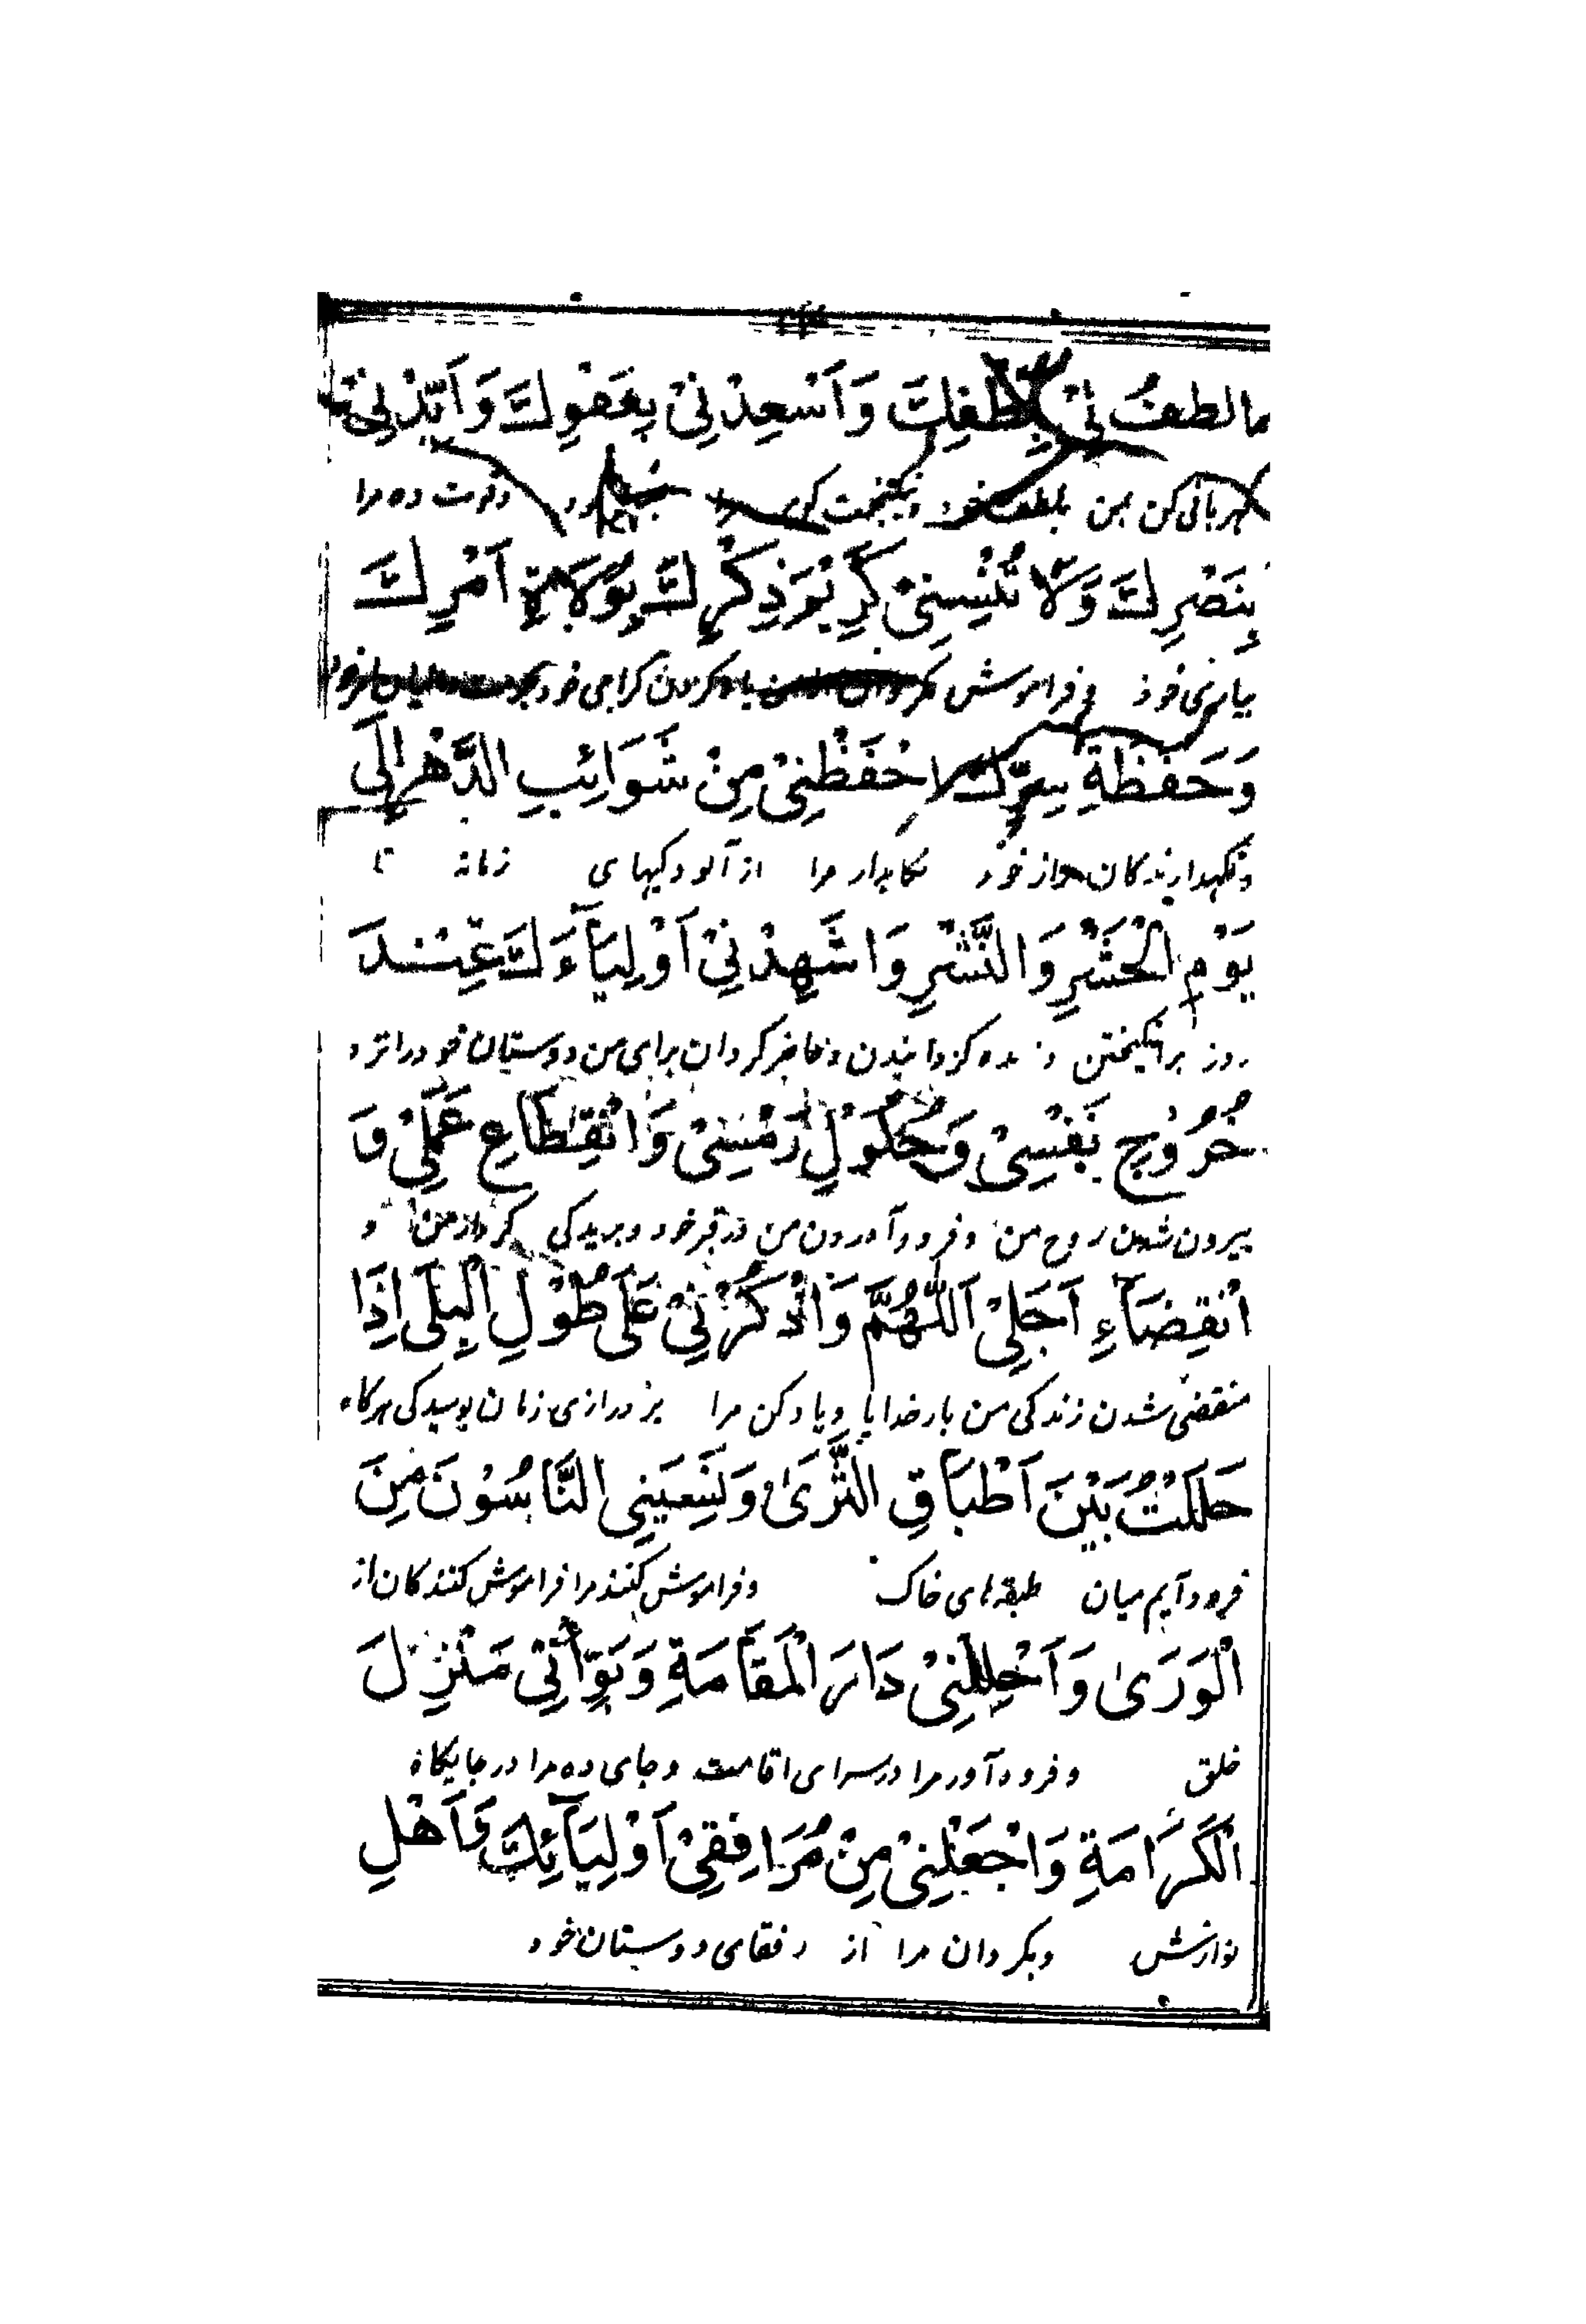 والطف لی بلطفك وَاَسْعِدْنِیْ بِعَفْوِكَ وَاَیِّدْنِیْ
مهربانی کن بمن بلطف خود و نیکبخت کن مرا و قوت ده مرا
بِنَصْرِكَ وَلَا تُنْسِنِیْ كَرِیْمَ ذِكْرِكَ بِوُلَاةِ اَمْرِكَ
بیاری خود و فراموش یاد کردن گرامی خود
وَحَفَظَةِ سِرِّكَ اِحْفَظْنِیْ مِنْ شَوَائِبِ الدَّهْرِ اِلَی
و نگهدارندگان راز خود نگاهدار مرا از آلودگیهای زمانه تا
یَوْمِ الْحَشْرِ وَالنَّشْرِ وَاشْهِدْنِیْ اَوْلِیَآءَكَ عِنْدَ
روز برانگیختن و زنده گردانیدن و حاضر گردان برای من دوستان خود را نزد
خُرُوْجِ نَفْسِیْ وَحُلُوْلِ رَمْسِیْ وَانْقِطَاعِ عَمَلِیْ وَ
بیرون شدن روح من و فرود آمدن من در قبر خود و بریدگی کردار من و
اَنْقِضَآءِ اَجَلِیْ اَللّٰهُمَّ وَاذْكُرْنِیْ عَلَی طُوْلِ الْبِلَی اِذَا
منقضی شدن زندگی من بار خدایا و یاد کن مرا بر درازی زمان پوسیدگی هرگاه
حَلَلْتُ بَیْنَ اَطْبَاقِ الثَّرَیٰ وَنَسِیَنِی النَّاسُوْنَ مِنَ
فرود آیم میان طبقه های خاک و فراموش کنند مرا فراموش کنندگان از
الْوَرَیٰ وَاَحْلِلْنِیْ دَارَ الْمَقَامَةِ وَبَوِّأْنِیْ مَنْزِلَ
خلق و فرود آور مرا در سرای اقامت و جای ده مرا در جایگاه
الْكَرَامَةِ وَاجْعَلْنِیْ مِنْ مُرَافِقِیْ اَوْلِیَآئِكَ وَاَهْلِ
نوازش و بگردان مرا از رفقای دوستان خود